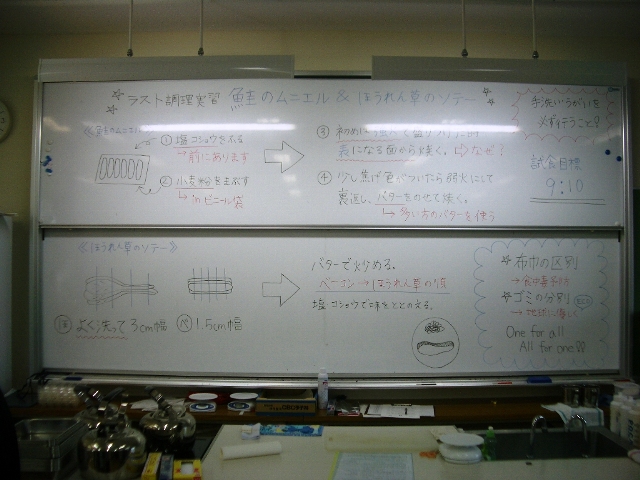 ラスト調理実習 鮭のムニエル & ほうれん草のソテー
手洗いうがいを
必ず行うこと?
試食目標
9:10
① 塩コショウをふる
→前にあります
② 小麦粉をまぶす
→in ビニール袋
③ 初めに
表になる面から焼く。 なぜ?
④ 少し焦げ色がついたら弱火にして
裏返し、バターをのせて焼く。
→多い方のバターを使う
《ほうれん草のソテー》
ほ よく洗って3cm幅
ベ 1.5cm幅
バターで炒める。
ベーコン→ほうれん草の順
塩・コショウで味をととのえる。
☆布巾の区別
→食中毒予防
☆ゴミの分別
→地球に優しく
One for all
All for one